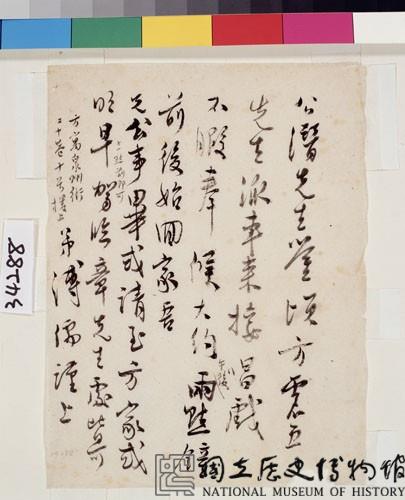 公潛先生鑒頃方震五
先生派車來接 戲
不暇奉候大約兩點
前後始回家吾
兄 事畢或請至方家或
明早駕臨章先生處皆可
方寓泉州街
二十巷十号樓上
弟溥儒謹上
34788
國立歷史博物館
NATIONAL MUSEUM OF HISTORY